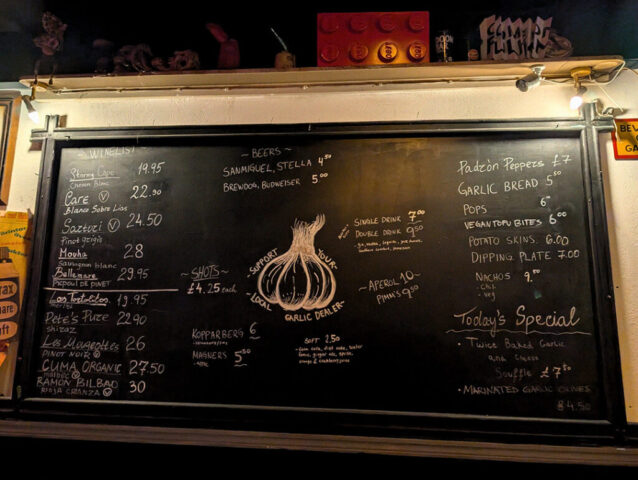 ~ WINELIST
Stormy Cape 19.95
Chenin Blanc
Care V 22.90
Blanco Sobre Lias
Sartori V 24.50
Pinot grigio
Mouhs 28
Sauvignon blanc
Bellemare 29.95
PICPOUL DE PINET
19.95
Pete's Pure 22.90
SHIRAZ
Les Mougeottes 26
PINOT NOIR V
CUMA ORGANIC 27.50
MALBEC V
RAMÓN BILBAO 30
RIOJA CRIANZA V
~ SHOTS ~
£4.25 each
KOPPARBERG 6
MAGNERS 5.50
~ BEERS ~
SANMIGUEL, STELLA 4.50
BREWDOG, BUDWEISER 5.00
SUPPORT YOUR
LOCAL GARLIC DEALER
SINGLE DRINK 7.00
DOUBLE DRINK 9.50
~ APEROL 10 ~
PIMM'S 9.50
SOFT 2.50
Padrón Peppers £7
GARLIC BREAD 5.50
POPS 6
VEGAN TOFU BITES 6.00
POTATO SKINS 6.00
DIPPING PLATE 7.00
NACHOS 9.00
- CHILLI
- VEG
Today's Special
• Twice Baked Garlic
and cheese
Souffle £7.50
• MARINATED GARLIC OLIVES
£4.50